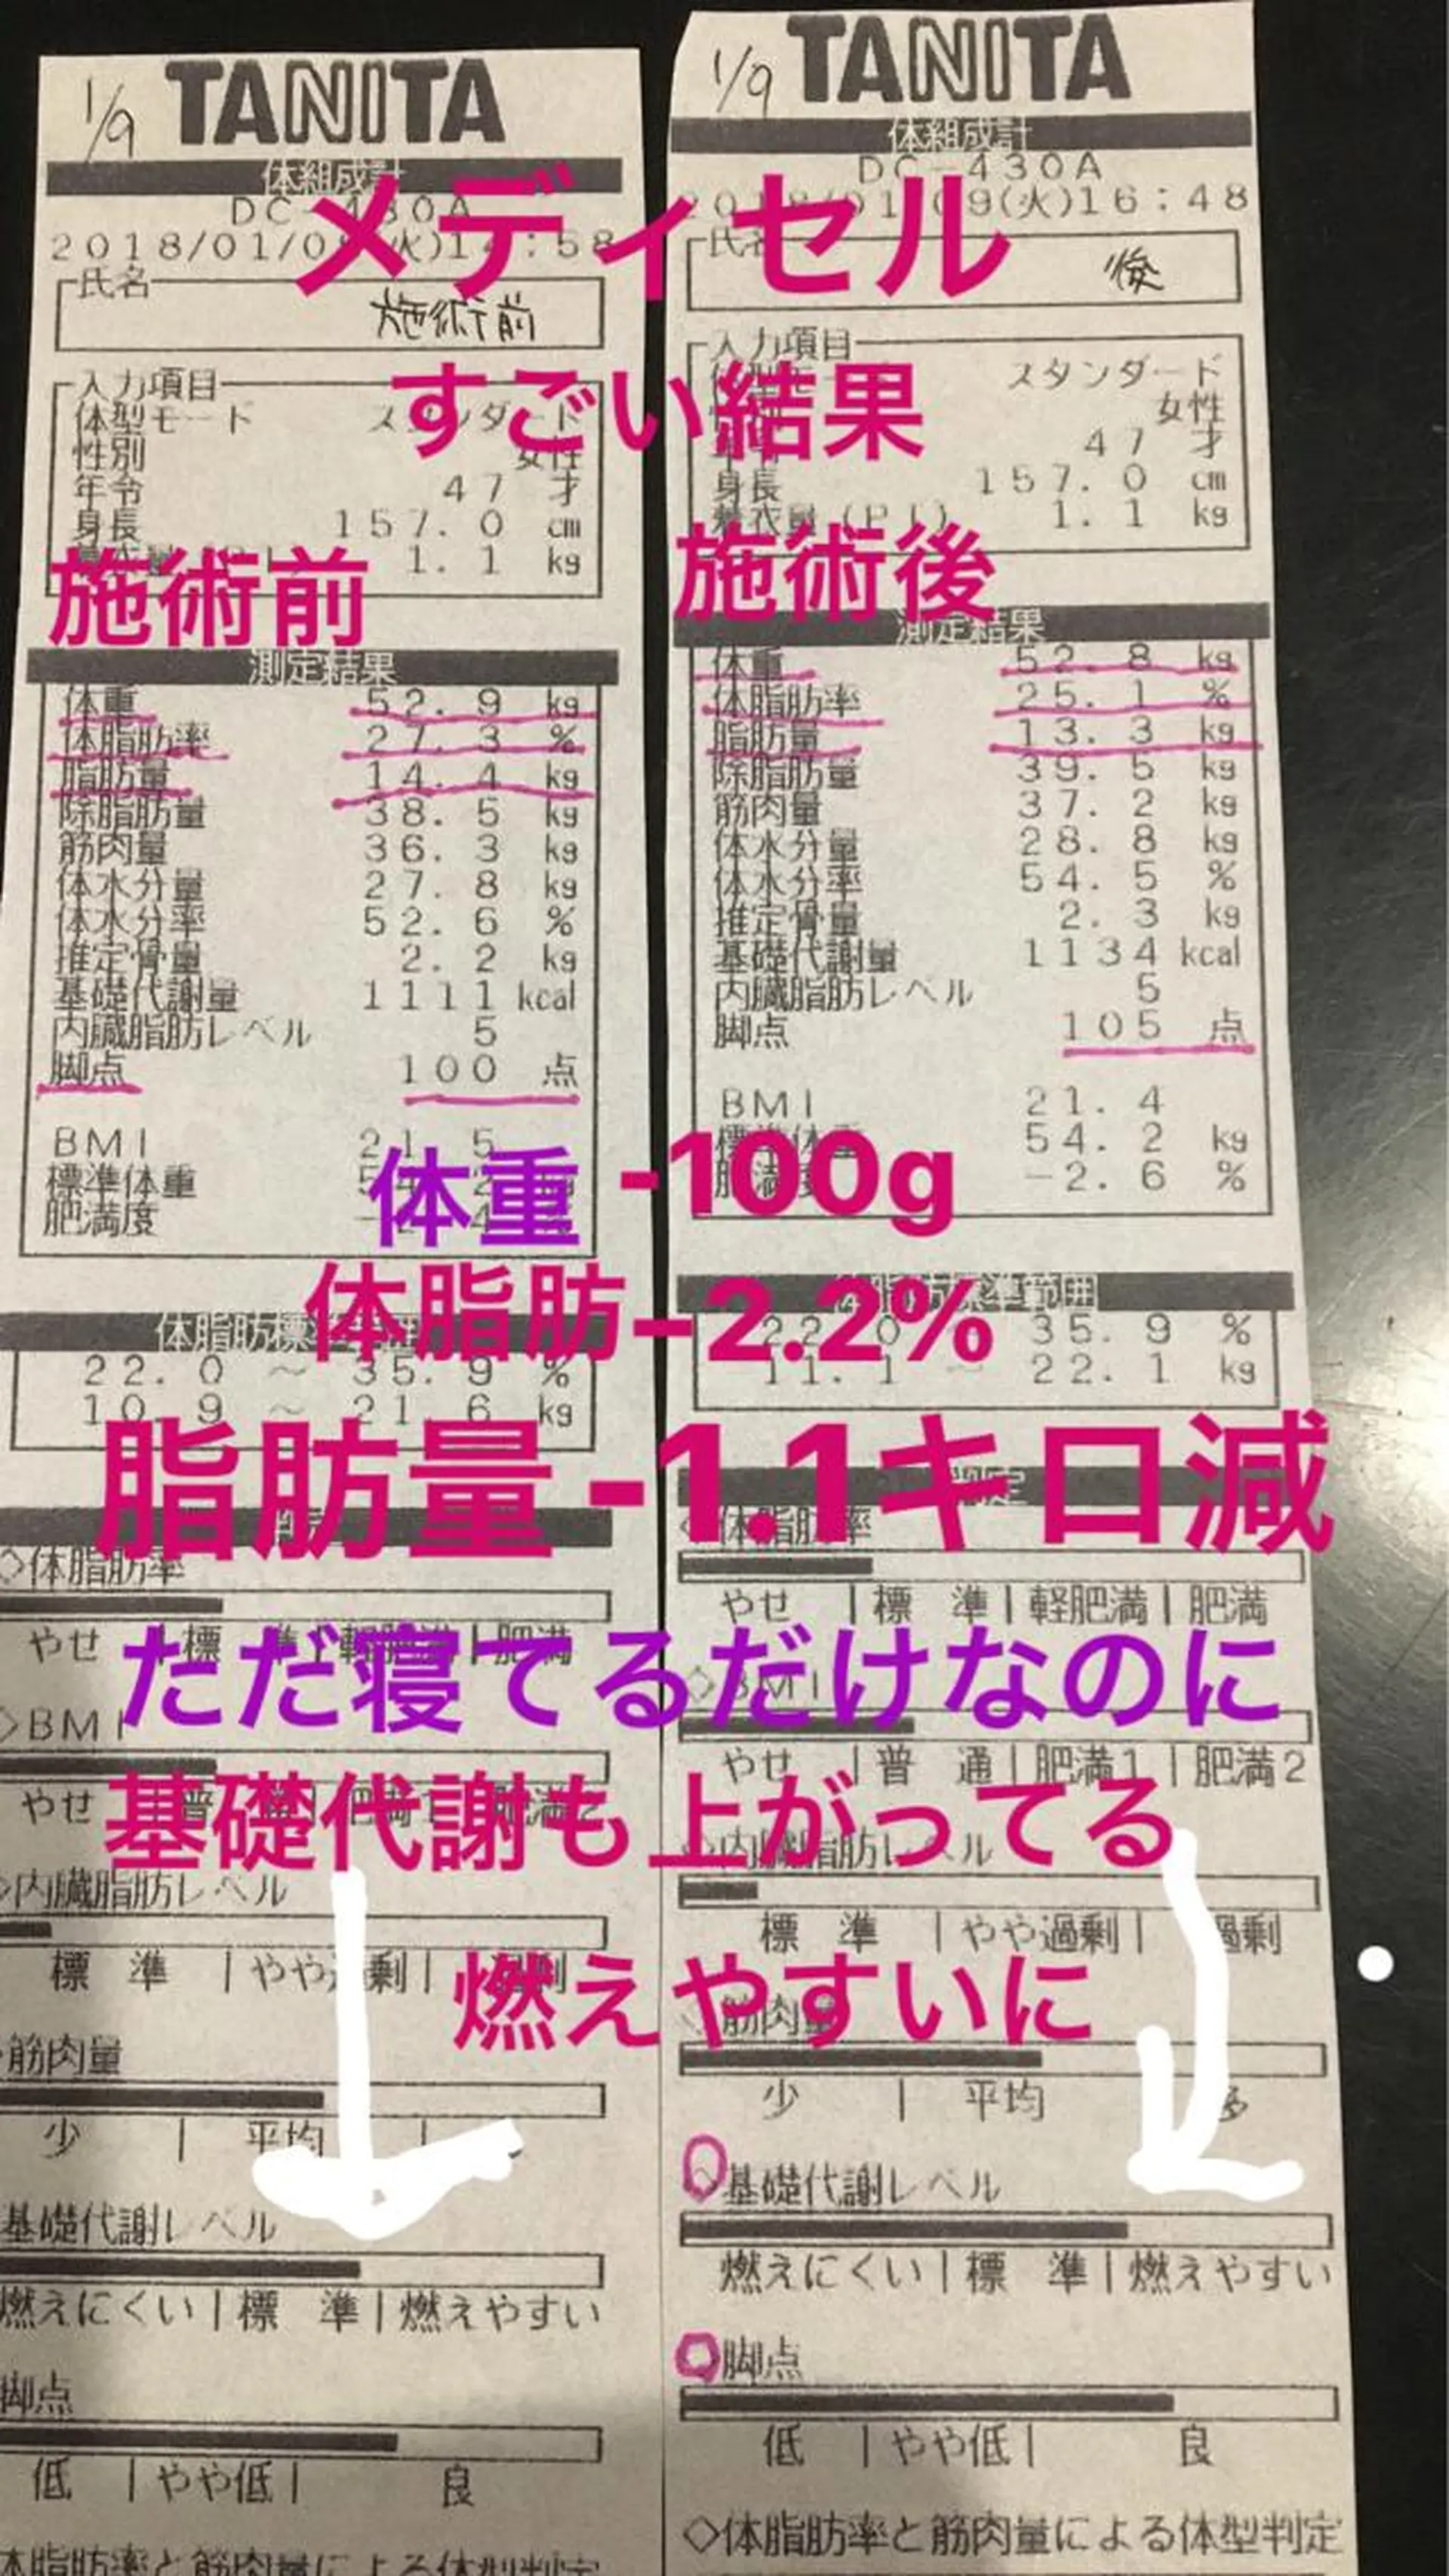 1/9 TANITA
体組成計
DC-430A
2018/01/0 (火)14:58
氏名
施術前
入力項目
体型モード スタンダード
性別 女性
年令 47 才
身長 157.0 cm
1.1 kg
測定結果
体重 52.9 kg
体脂肪率 27.3 %
脂肪量 14.4 kg
除脂肪量 38.5 kg
筋肉量 36.3 kg
体水分量 27.8 kg
体水分率 52.6 %
推定骨量 2.2 kg
基礎代謝量 1111 kcal
内臓脂肪レベル 5
脚点 100 点
BMI 21.5
標準体重
肥満度
体脂肪標準範囲
22.0 ~ 35.9 %
10.9 ~ 21.6 kg
判定
◇体脂肪率
やせ |標 準|軽肥満|肥満
◇BMI
やせ |普 通|肥満1|肥満2
◇内臓脂肪レベル
標 準 |やや過剰|過剰
筋肉量
少 | 平均 |
基礎代謝レベル
燃えにくい|標 準|燃えやすい
脚点
低 |やや低| 良
体脂肪率と筋肉量による体型判定
1/9 TANITA
体組成計
DC-430A
2018/01/09(火)16:48
氏名
後
入力項目
体型モード スタンダード
女性
年令 47 才
身長 157.0 cm
着衣量(PT) 1.1 kg
測定結果
体重 52.8 kg
体脂肪率 25.1 %
脂肪量 13.3 kg
除脂肪量 39.5 kg
筋肉量 37.2 kg
体水分量 28.8 kg
体水分率 54.5 %
推定骨量 2.3 kg
基礎代謝量 1134 kcal
内臓脂肪レベル 5
脚点 105 点
BMI 21.4
標準体重 54.2 kg
肥満度 -2.6 %
体脂肪標準範囲
22.0 ~ 35.9 %
11.1 ~ 22.1 kg
判定
◇体脂肪率
やせ |標 準|軽肥満|肥満
◇BMI
やせ |普 通|肥満1|肥満2
◇内臓脂肪レベル
標 準 |やや過剰| 過剰
◇筋肉量
少 | 平均 多
◇基礎代謝レベル
燃えにくい|標 準|燃えやすい
◇脚点
低 |やや低| 良
◇体脂肪率と筋肉量による体型判定
メディセル
すごい結果
施術前 施術後
体重 -100g
体脂肪-2.2%
脂肪量-1.1キロ減
ただ寝てるだけなのに
基礎代謝も上がってる
燃えやすいに